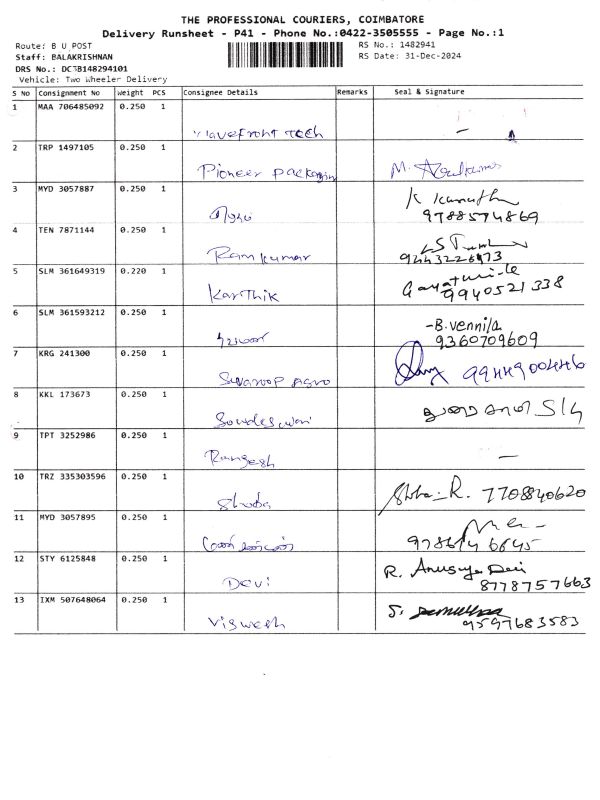 THE PROFESSIONAL COURIERS, COIMBATORE
Delivery Runsheet - P41 - Phone No.:0422-3505555 - Page No.:1
Route: B U POST RS No.: 1482941
Staff: BALAKRISHNAN RS Date: 31-Dec-2024
DRS No.: DCSB148294101
Vehicle: Two Wheeler Delivery
S No Consignment No Weight PCS Consignee Details Remarks Seal & Signature
1 MAA 706485092 0.250 1
Wavefront Tech
2 TRP 1497105 0.250 1
Pioneer packaging
3 MYD 3057887 0.250 1
9788574869
4 TEN 7871144 0.250 1
Ramkumar
5 SLM 361649319 0.220 1
Karthik 9940521338
6 SLM 361593212 0.250 1
B.Vennila
9360709609
7 KRG 241300 0.250 1
Swaroop Agro 9944900446
8 KKL 173673 0.250 1
9 TPT 3252986 0.250 1
Rangesh
10 TRZ 335303596 0.250 1
Shoba Shoba-R. 7708840620
11 MYD 3057895 0.250 1
12 STY 6125848 0.250 1
Devi R. Anusuya Devi
8778757663
13 IXM 507648064 0.250 1
Viswesh 9597683583